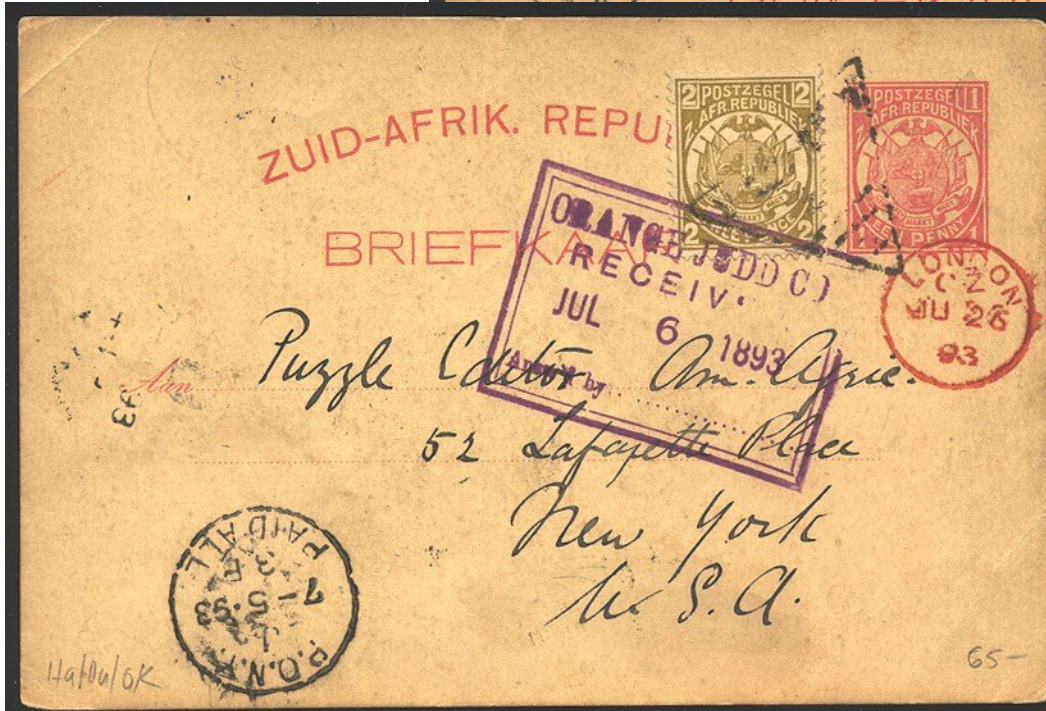 ZUID-AFRIK. REPU
BRIEFKAA
2 POSTZEGEL 2
Z. AFR. REPUBLIEK
2 TWEE PENCE 2
POSTZEGEL 1
Z. AFR. REPUBLIEK
EEN PENNY 1
ORANGE JUDD CO
RECEIV
JUL 6 1893
by
LONDON
JU 26
93
Aan
Puzzle Editor Am. Agric.
52 Lafayette Place
New York
U. S. A.
93
P.O.N.Y.
5-93
7
3
PAID ALL
Ha/Du/OK
65-